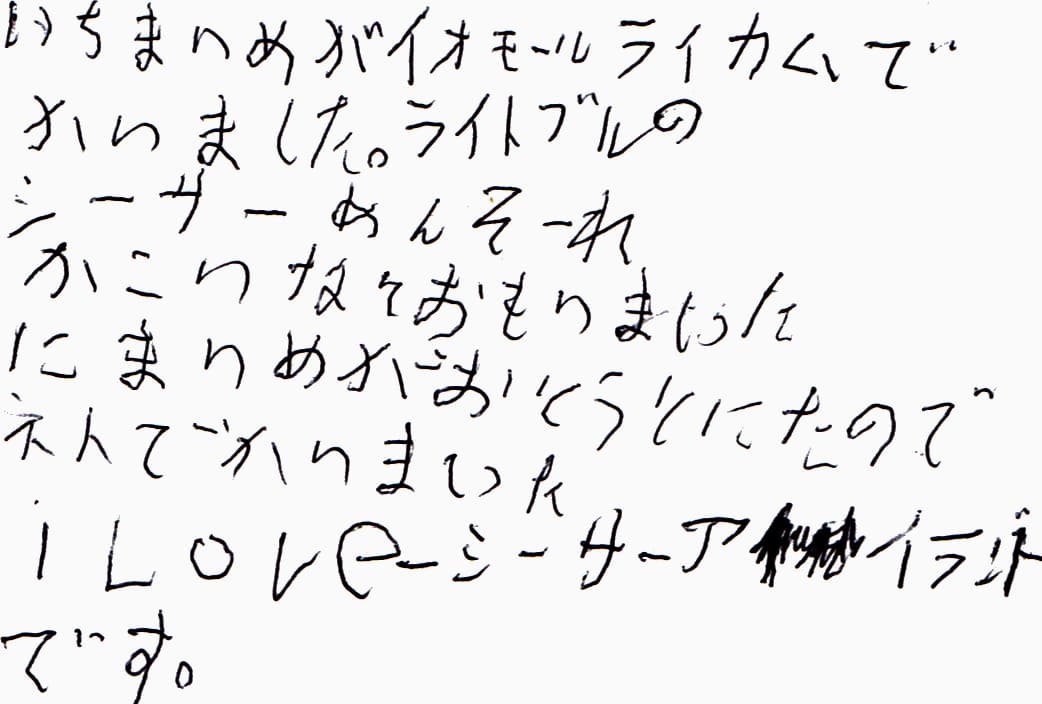 いちまいめがイオモールライカムで
かいました。ライトブルの
シーサーめんそーれ
かこいなておもいました
にまいめがおとうとにたので
ネトでかいました
i LOVe シーサーアイランド
です。